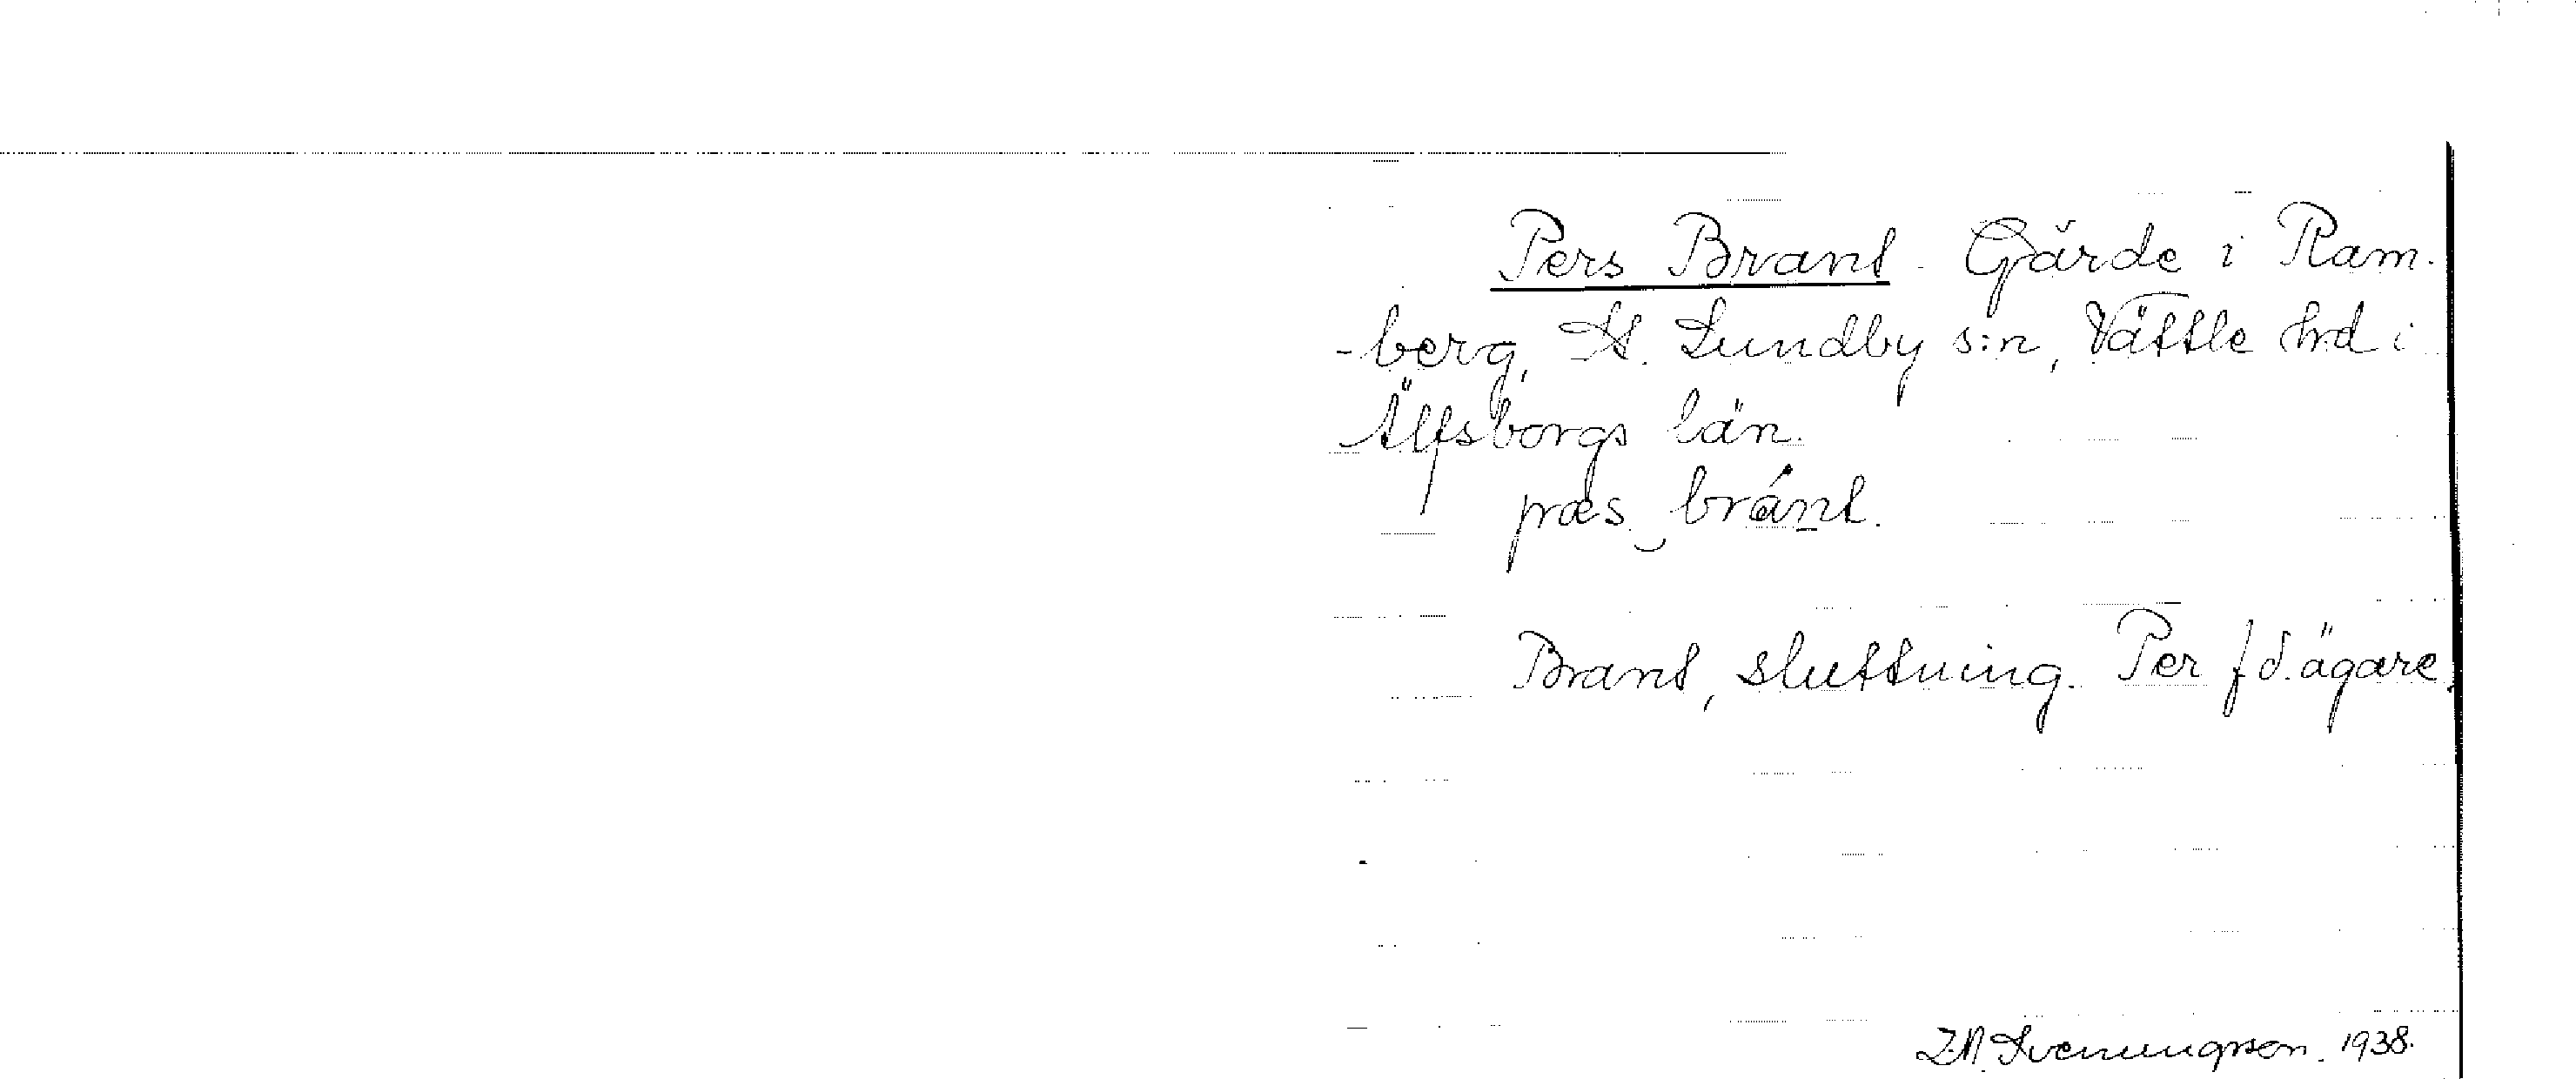 Pers Brant. Gärde i Ram-
-berg, St. Lundby s:n, Vättle hrd i
Älfsborgs län.
præs bránt.
Brant, sluttning. Per f d. ägare.
Svenungsson. 1938.